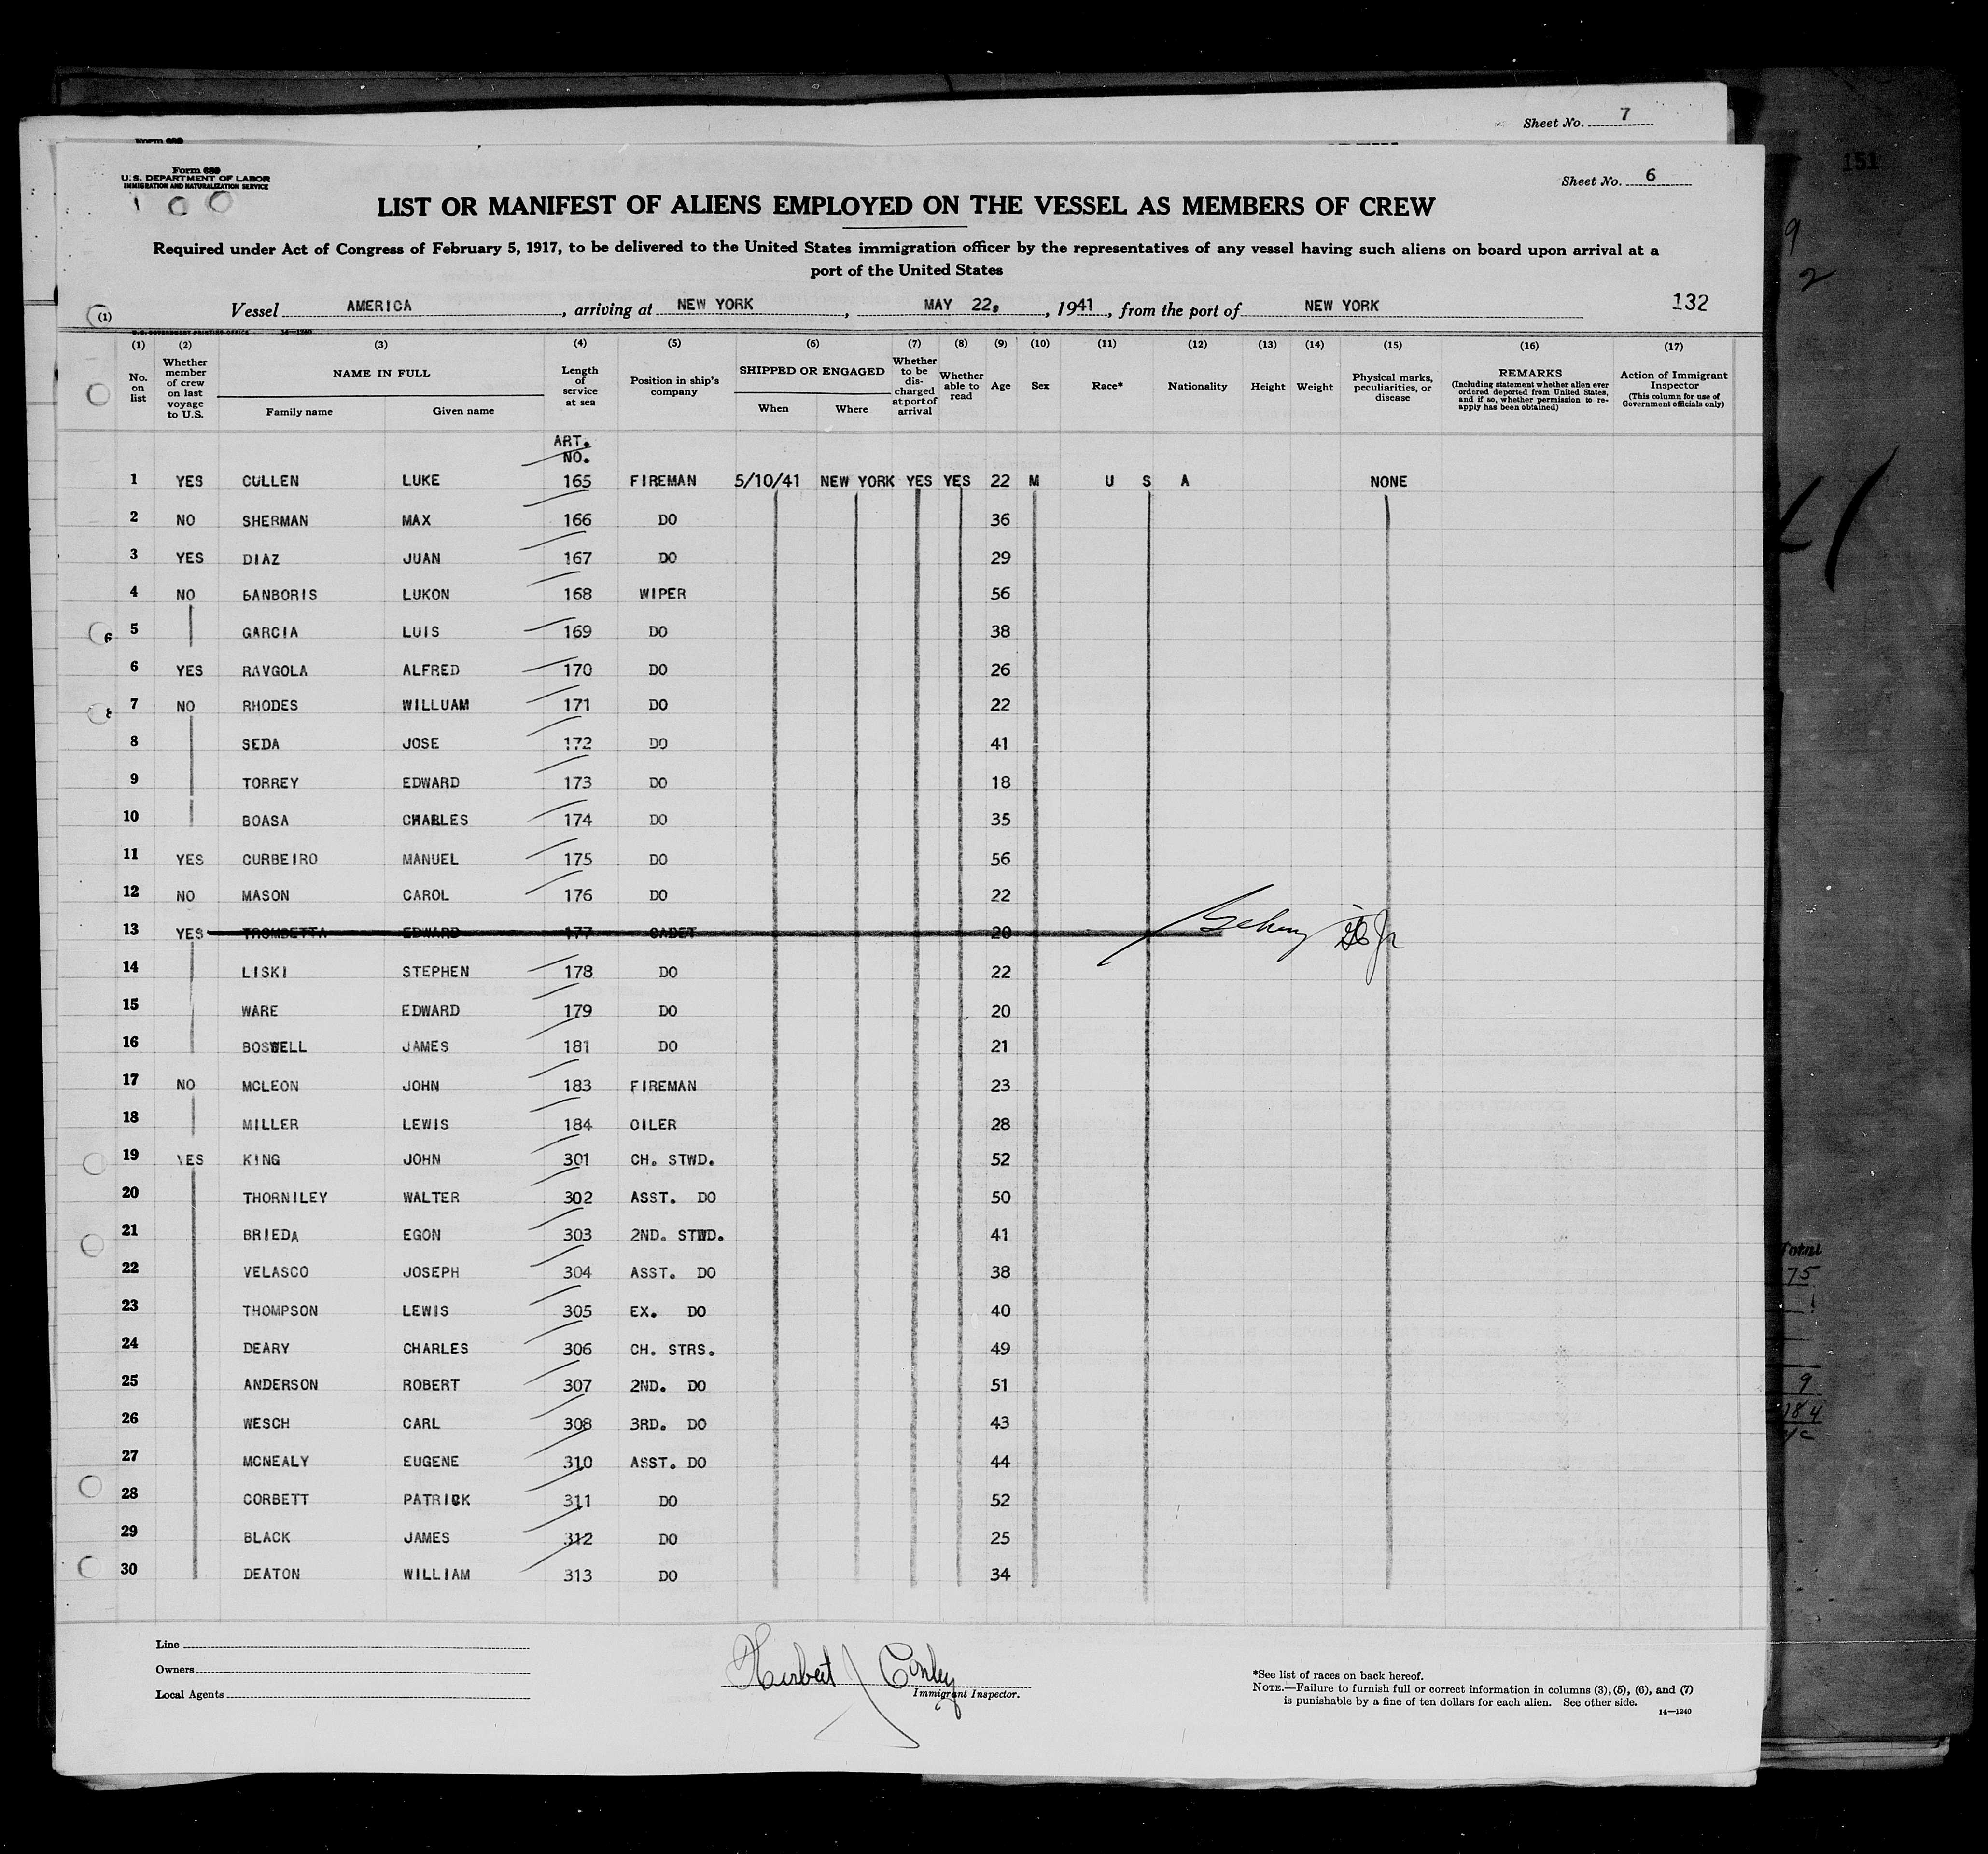 Sheet No. 7
Form 689
Form 689
U. S. DEPARTMENT OF LABOR
IMMIGRATION AND NATURALIZATION SERVICE
Sheet No. 6
151
LIST OR MANIFEST OF ALIENS EMPLOYED ON THE VESSEL AS MEMBERS OF CREW
Required under Act of Congress of February 5, 1917, to be delivered to the United States immigration officer by the representatives of any vessel having such aliens on board upon arrival at a
port of the United States
(1) Vessel AMERICA, arriving at NEW YORK, MAY 22, 1941, from the port of NEW YORK 132
U. S. GOVERNMENT PRINTING OFFICE 14—1240
(1) (2) (3) (4) (5) (6) (7) (8) (9) (10) (11) (12) (13) (14) (15) (16) (17)
No. on list Whether member of crew on last voyage to U.S. NAME IN FULL Family name Given name Length of service at sea Position in ship's company SHIPPED OR ENGAGED When Where Whether to be discharged at port of arrival Whether able to read Age Sex Race* Nationality Height Weight Physical marks, peculiarities, or disease REMARKS (Including statement whether alien ever ordered deported from United States, and if so, whether permission to re-apply has been obtained) Action of Immigrant Inspector (This column for use of Government officials only)
ART.
NO.
1 YES CULLEN LUKE 165 FIREMAN 5/10/41 NEW YORK YES YES 22 M U S A NONE
2 NO SHERMAN MAX 166 DO 36
3 YES DIAZ JUAN 167 DO 29
4 NO GANBORIS LUKON 168 WIPER 56
5 GARCIA LUIS 169 DO 38
6 YES RAVGOLA ALFRED 170 DO 26
7 NO RHODES WILLUAM 171 DO 22
8 SEDA JOSE 172 DO 41
9 TORREY EDWARD 173 DO 18
10 BOASA CHARLES 174 DO 35
11 YES CURBEIRO MANUEL 175 DO 56
12 NO MASON CAROL 176 DO 22
13 YES TROMBETTA EDWARD 177 CADET 20
14 LISKI STEPHEN 178 DO 22
15 WARE EDWARD 179 DO 20
16 BOSWELL JAMES 181 DO 21
17 NO MCLEON JOHN 183 FIREMAN 23
18 MILLER LEWIS 184 OILER 28
19 YES KING JOHN 301 CH. STWD. 52
20 THORNILEY WALTER 302 ASST. DO 50
21 BRIEDA EGON 303 2ND. STWD. 41
22 VELASCO JOSEPH 304 ASST. DO 38
23 THOMPSON LEWIS 305 EX. DO 40
24 DEARY CHARLES 306 CH. STRS. 49
25 ANDERSON ROBERT 307 2ND. DO 51
26 WESCH CARL 308 3RD. DO 43
27 MCNEALY EUGENE 310 ASST. DO 44
28 CORBETT PATRICK 311 DO 52
29 BLACK JAMES 312 DO 25
30 DEATON WILLIAM 313 DO 34
Total
75
9
184
Line
Owners
Local Agents
Herbert J Conley
Immigrant Inspector.
*See list of races on back hereof.
NOTE.—Failure to furnish full or correct information in columns (3), (5), (6), and (7)
is punishable by a fine of ten dollars for each alien. See other side.
14—1240